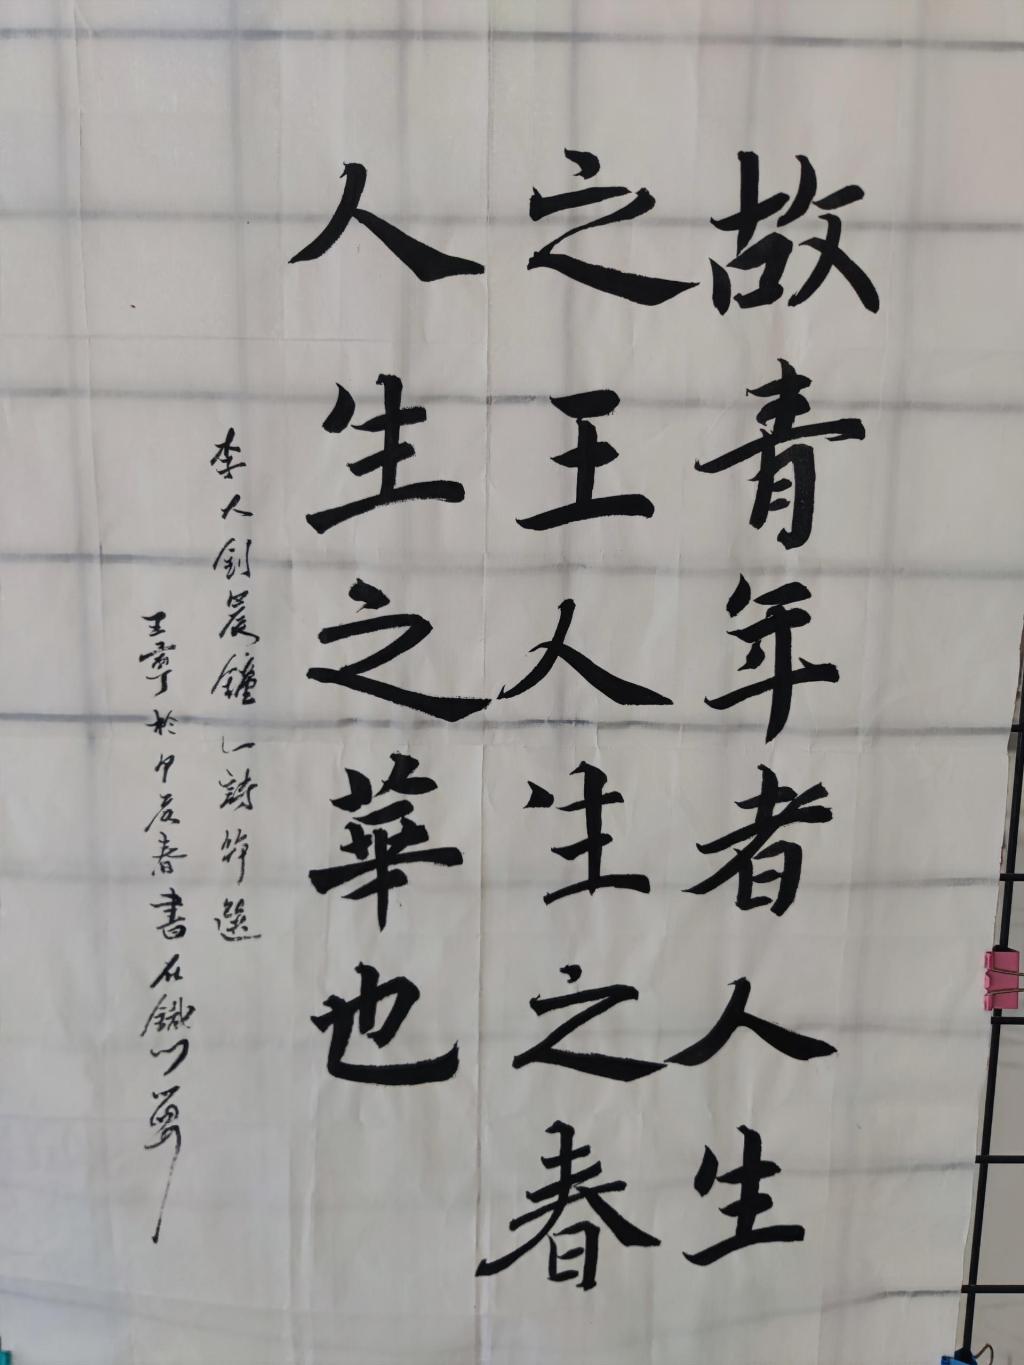 故青年者人生
之王人生之春
人生之華也
李大釗晨鐘之詩節選
王寧於甲辰春書在鐵